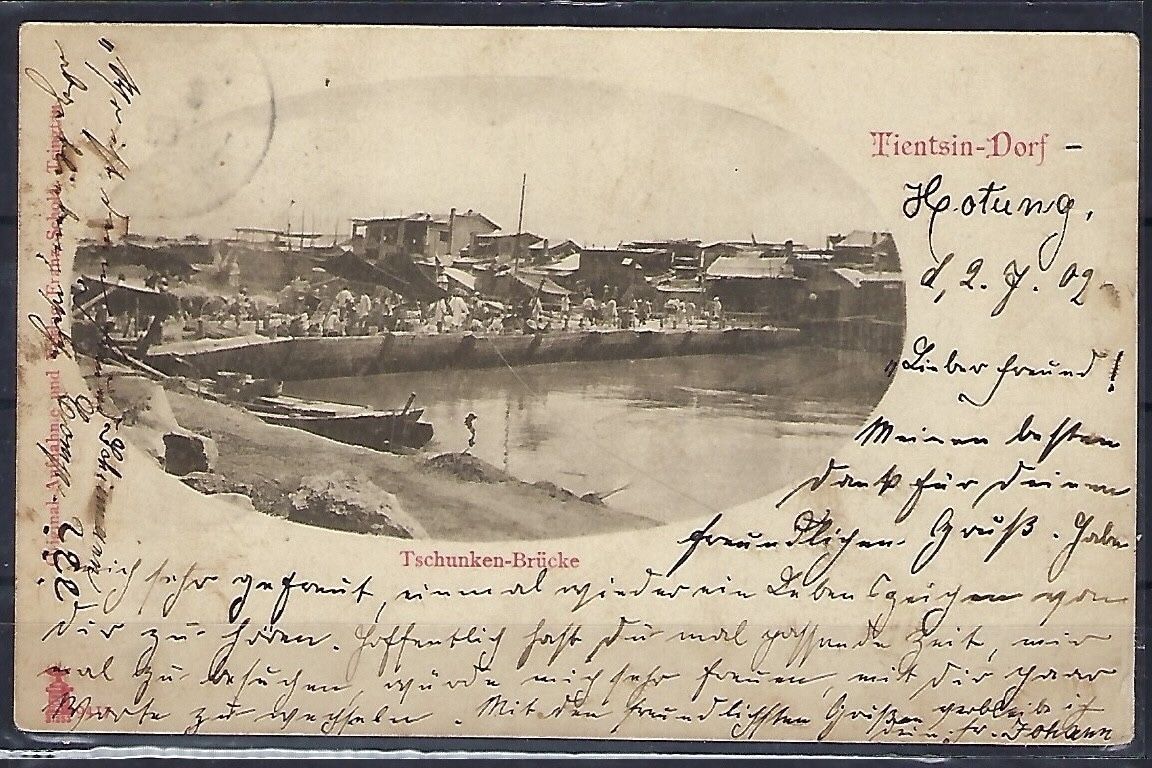 Tientsin-Dorf -
Hotung,
d, 2. 7. 02
"Lieber Freund!
Meinen besten
Dank für Deinen
freundlichen Gruß. Habe
mich sehr gefreut, einmal wieder ein Lebenszeichen von
Dir zu hören. Hoffentlich hast Du mal passende Zeit, mir
mal zu besuchen, würde mich sehr freuen, mit Dir paar
Worte zu wechseln. Mit den freundlichsten Grüßen verbleibe ich
Dein Fr. Johann
Tschunken-Brücke
Original-Aufnahme und Verlag Franz Scholz Tsingtau